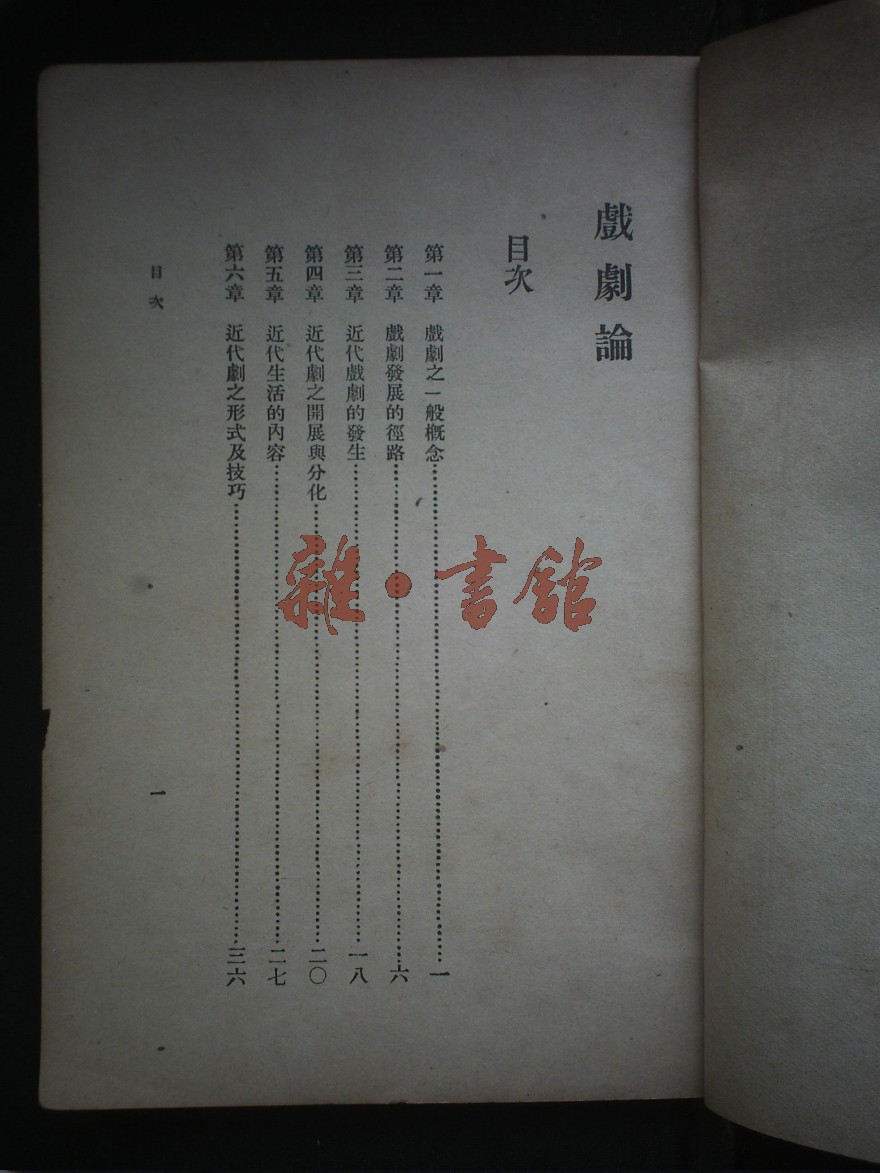 戲劇論
目次
第一章 戲劇之一般概念……一
第二章 戲劇發展的徑路……六
第三章 近代戲劇的發生……一八
第四章 近代劇之開展與分化……二〇
第五章 近代生活的內容……二七
第六章 近代劇之形式及技巧……三六
目次 一
雜·書館